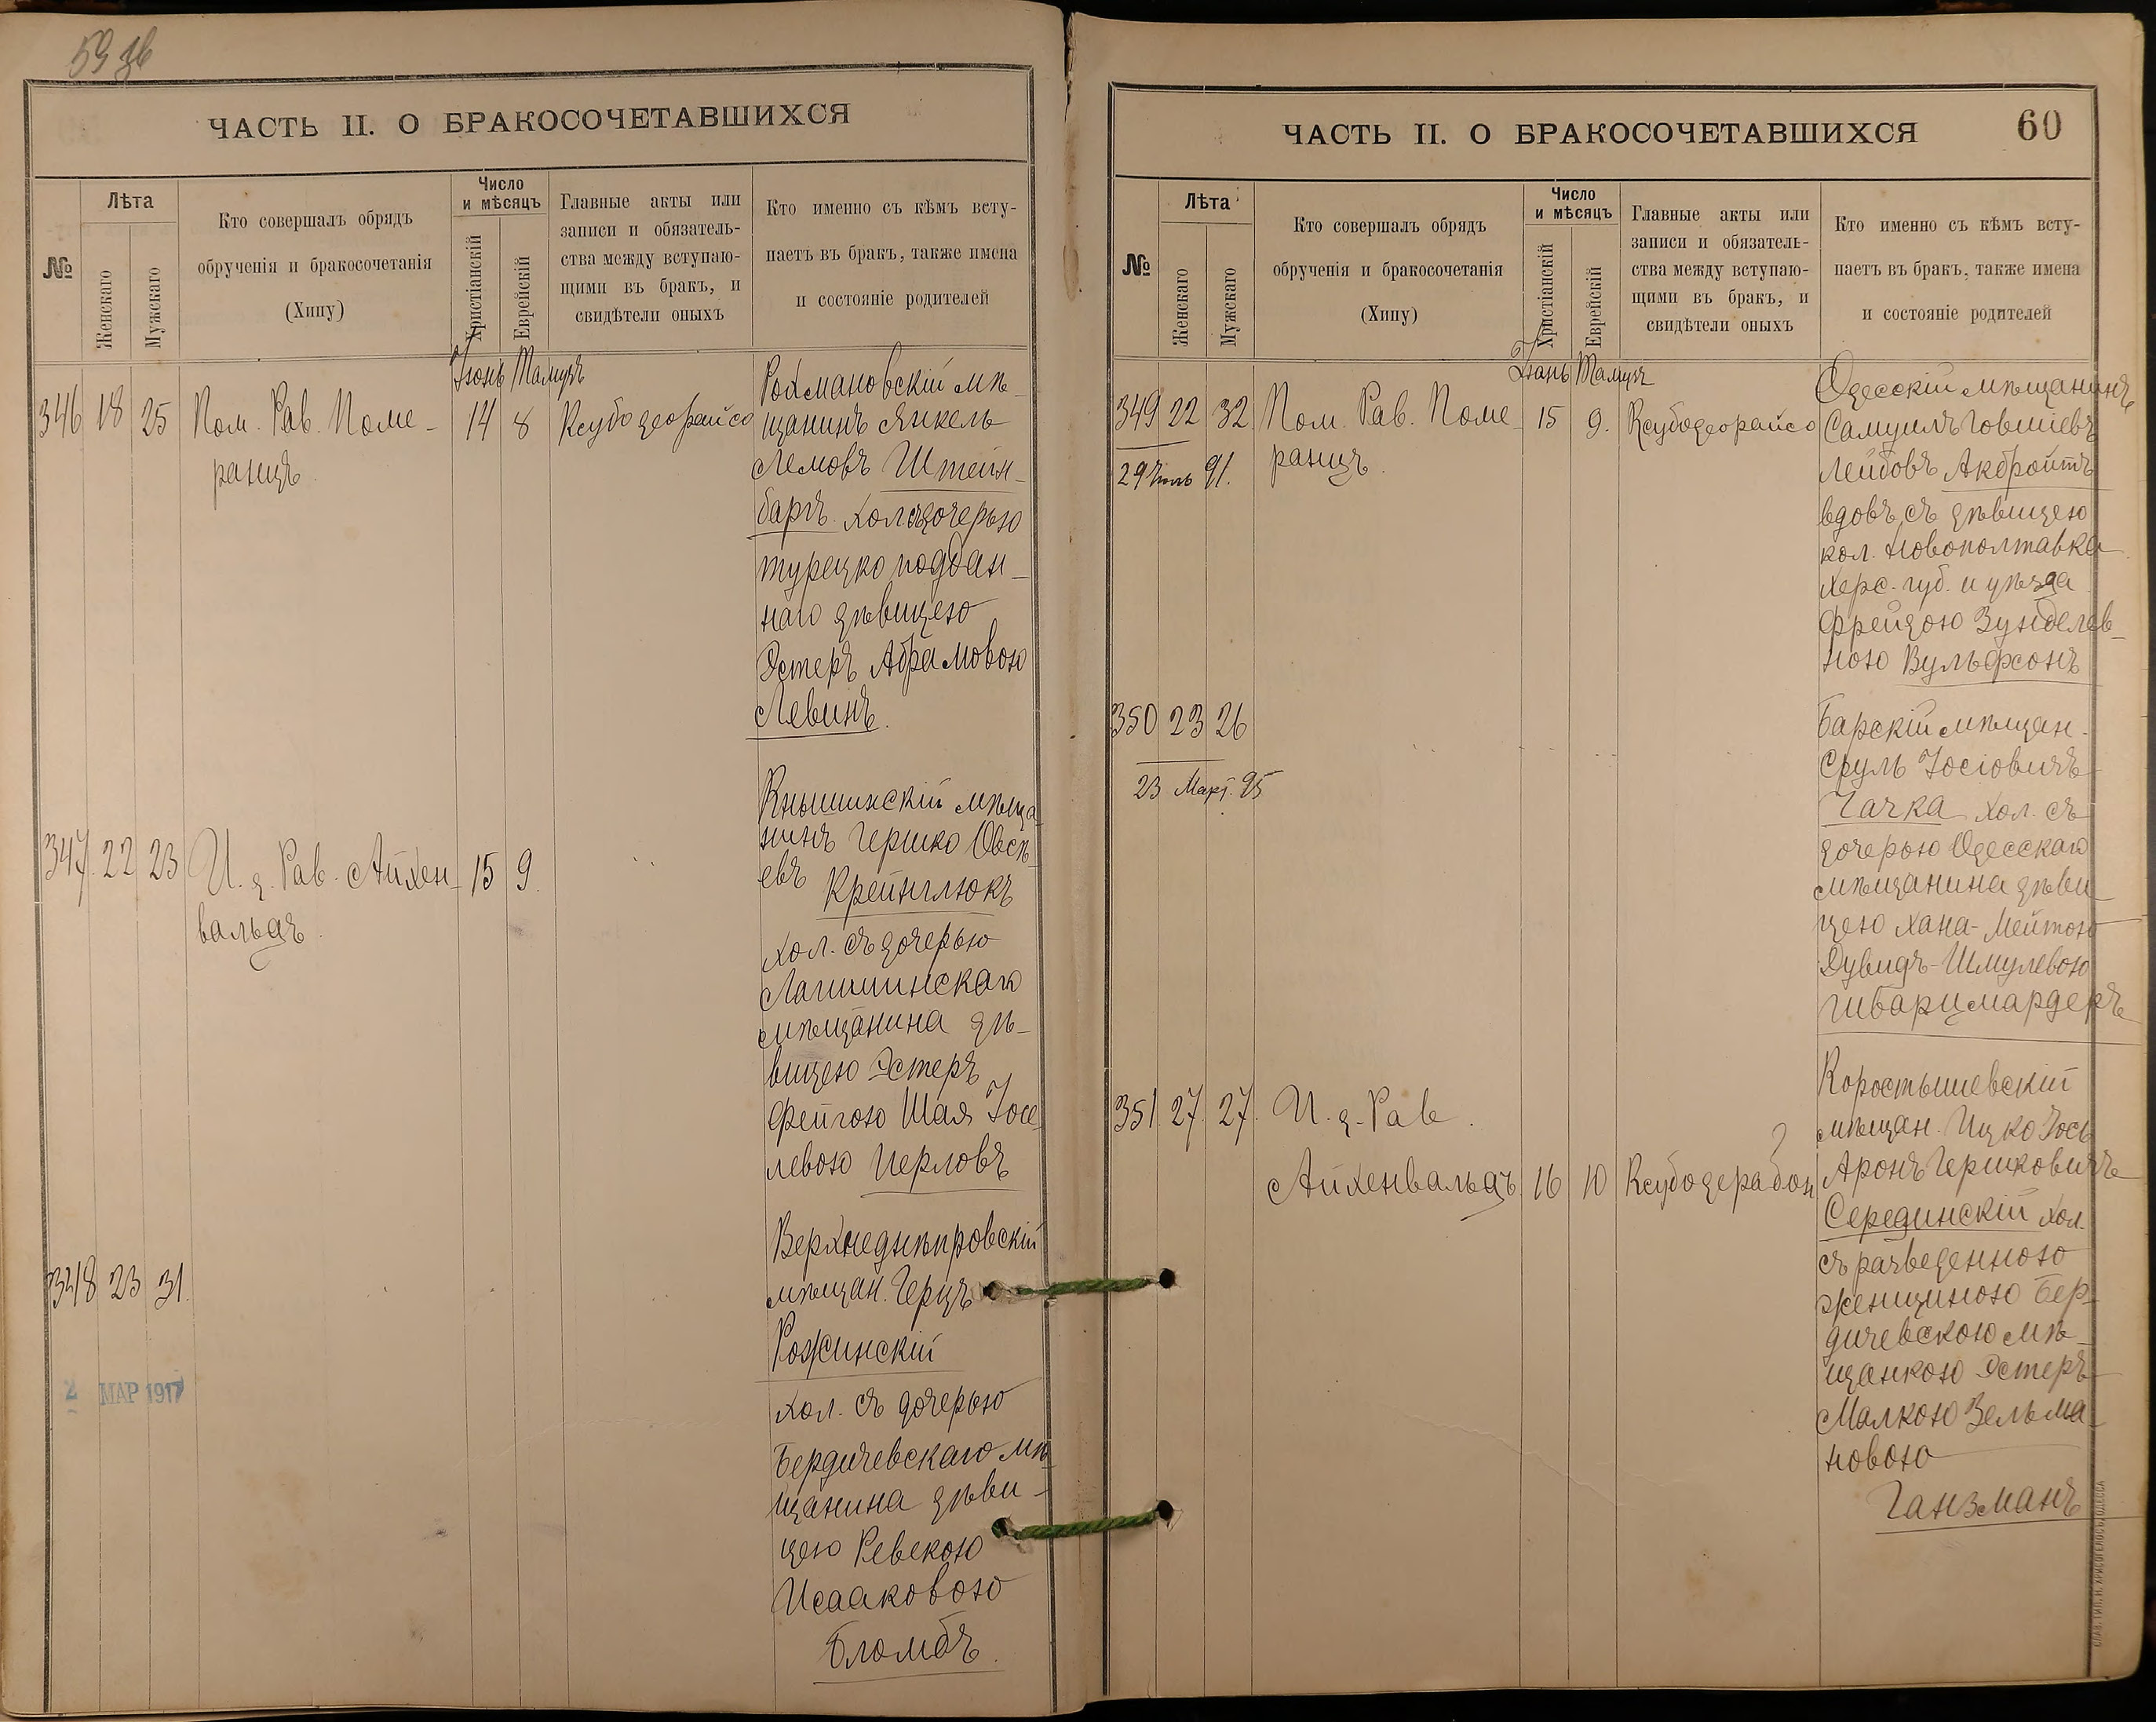 59 зв
ЧАСТЬ II. О БРАКОСОЧЕТАВШИХСЯ
№
Лѣта
Женскаго
Мужскаго
Кто совершалъ обрядъ
обрученія и бракосочетанія
(Хипу)
Число
и мѣсяцъ
Христіанскій
Еврейскій
Главные акты или
записи и обязатель-
ства между вступаю-
щими въ бракъ, и
свидѣтели оныхъ
Кто именно съ кѣмъ всту-
паетъ въ бракъ, также имена
и состояніе родителей
Іюнь Тамузъ
346 18 25 Пом. Рав. Поме-
ранцъ.
14 8 Ксубо деорайсо
Рохмановскій мѣ-
щанинъ Янкель
Лемовъ Штейн-
баргъ хол. съ дочерью
турецко поддан-
наго дѣвицею
Эстеръ Абрамовою
Левинъ.
347. 22 23 И. д. Рав. Айхен-
вальдъ.
15 9.
Кнышинскій мѣща-
нинъ Гершко Овсѣ-
евъ Крейнглюкъ
хол. съ дочерью
Логишинскаго
мѣщанина дѣ-
вицею Эстеръ
Фейгою Шая Іосе-
левою Перловъ
348 23 31.
Верхнеднѣпровскій
мѣщан. Герцъ
Рожинскій
хол. съ дочерью
Бердичевскаго мѣ-
щанина дѣви-
цею Ревекою
Исааковою
Бломбъ.
2 МАР 1917
60
ЧАСТЬ II. О БРАКОСОЧЕТАВШИХСЯ
№
Лѣта
Женскаго
Мужскаго
Кто совершалъ обрядъ
обрученія и бракосочетанія
(Хипу)
Число
и мѣсяцъ
Христіанскій
Еврейскій
Главные акты или
записи и обязатель-
ства между вступаю-
щими въ бракъ, и
свидѣтели оныхъ
Кто именно съ кѣмъ всту-
паетъ въ бракъ, также имена
и состояніе родителей
Іюнь Тамузъ
349 22 32. Пом. Рав. Поме-
ранцъ.
29 91.
15 9. Ксубодеорайсо
Одесскій мѣщанинъ
Самуилъ Говшіевъ
Лейбовъ Акбройтъ
вдовъ, съ дѣвицею
кол. Новополтавка
Херс. губ. и уѣзда
Фрейдою Зунделев-
ною Вульфсонъ
350 23 26
23 Март. 95
Барскій мѣщан.
Сруль Іосіовичъ
Гачка хол. съ
дочерью Одесскаго
мѣщанина дѣви-
цею Хана-Мейтою
Дувидъ-Шмулевою
Шварцмардеръ
351. 27. 27. И. д. Рав.
Айхенвальдъ 16 10 Ксубодерабон
Коростышевскій
мѣщан. Ицко Іось
Аронъ Гершковичъ
Серединскій хол.
съ разведенною
женщиною Бер-
дичевскою мѣ-
щанкою Эстеръ
Малкою Зельма-
новою
Ганзманъ
СЛАВ. ТИП. Н. ХРИСОГЕЛОСЪ, ОДЕССА